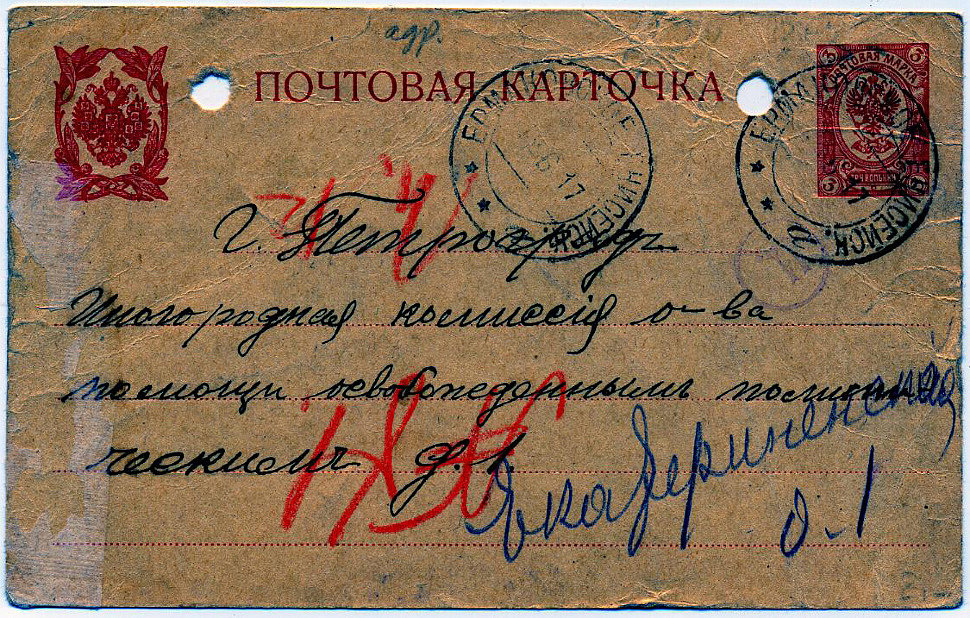 адр.
ПОЧТОВАЯ КАРТОЧКА
ПОЧТОВАЯ МАРКА
3 3
3 3
ЕНИСЕЙСК.
6 17
г. Петроградъ
Иногородная комиссія о-ва
помощи освобожденнымъ полити
ческимъ д. 1
Екатерининская
д. 1